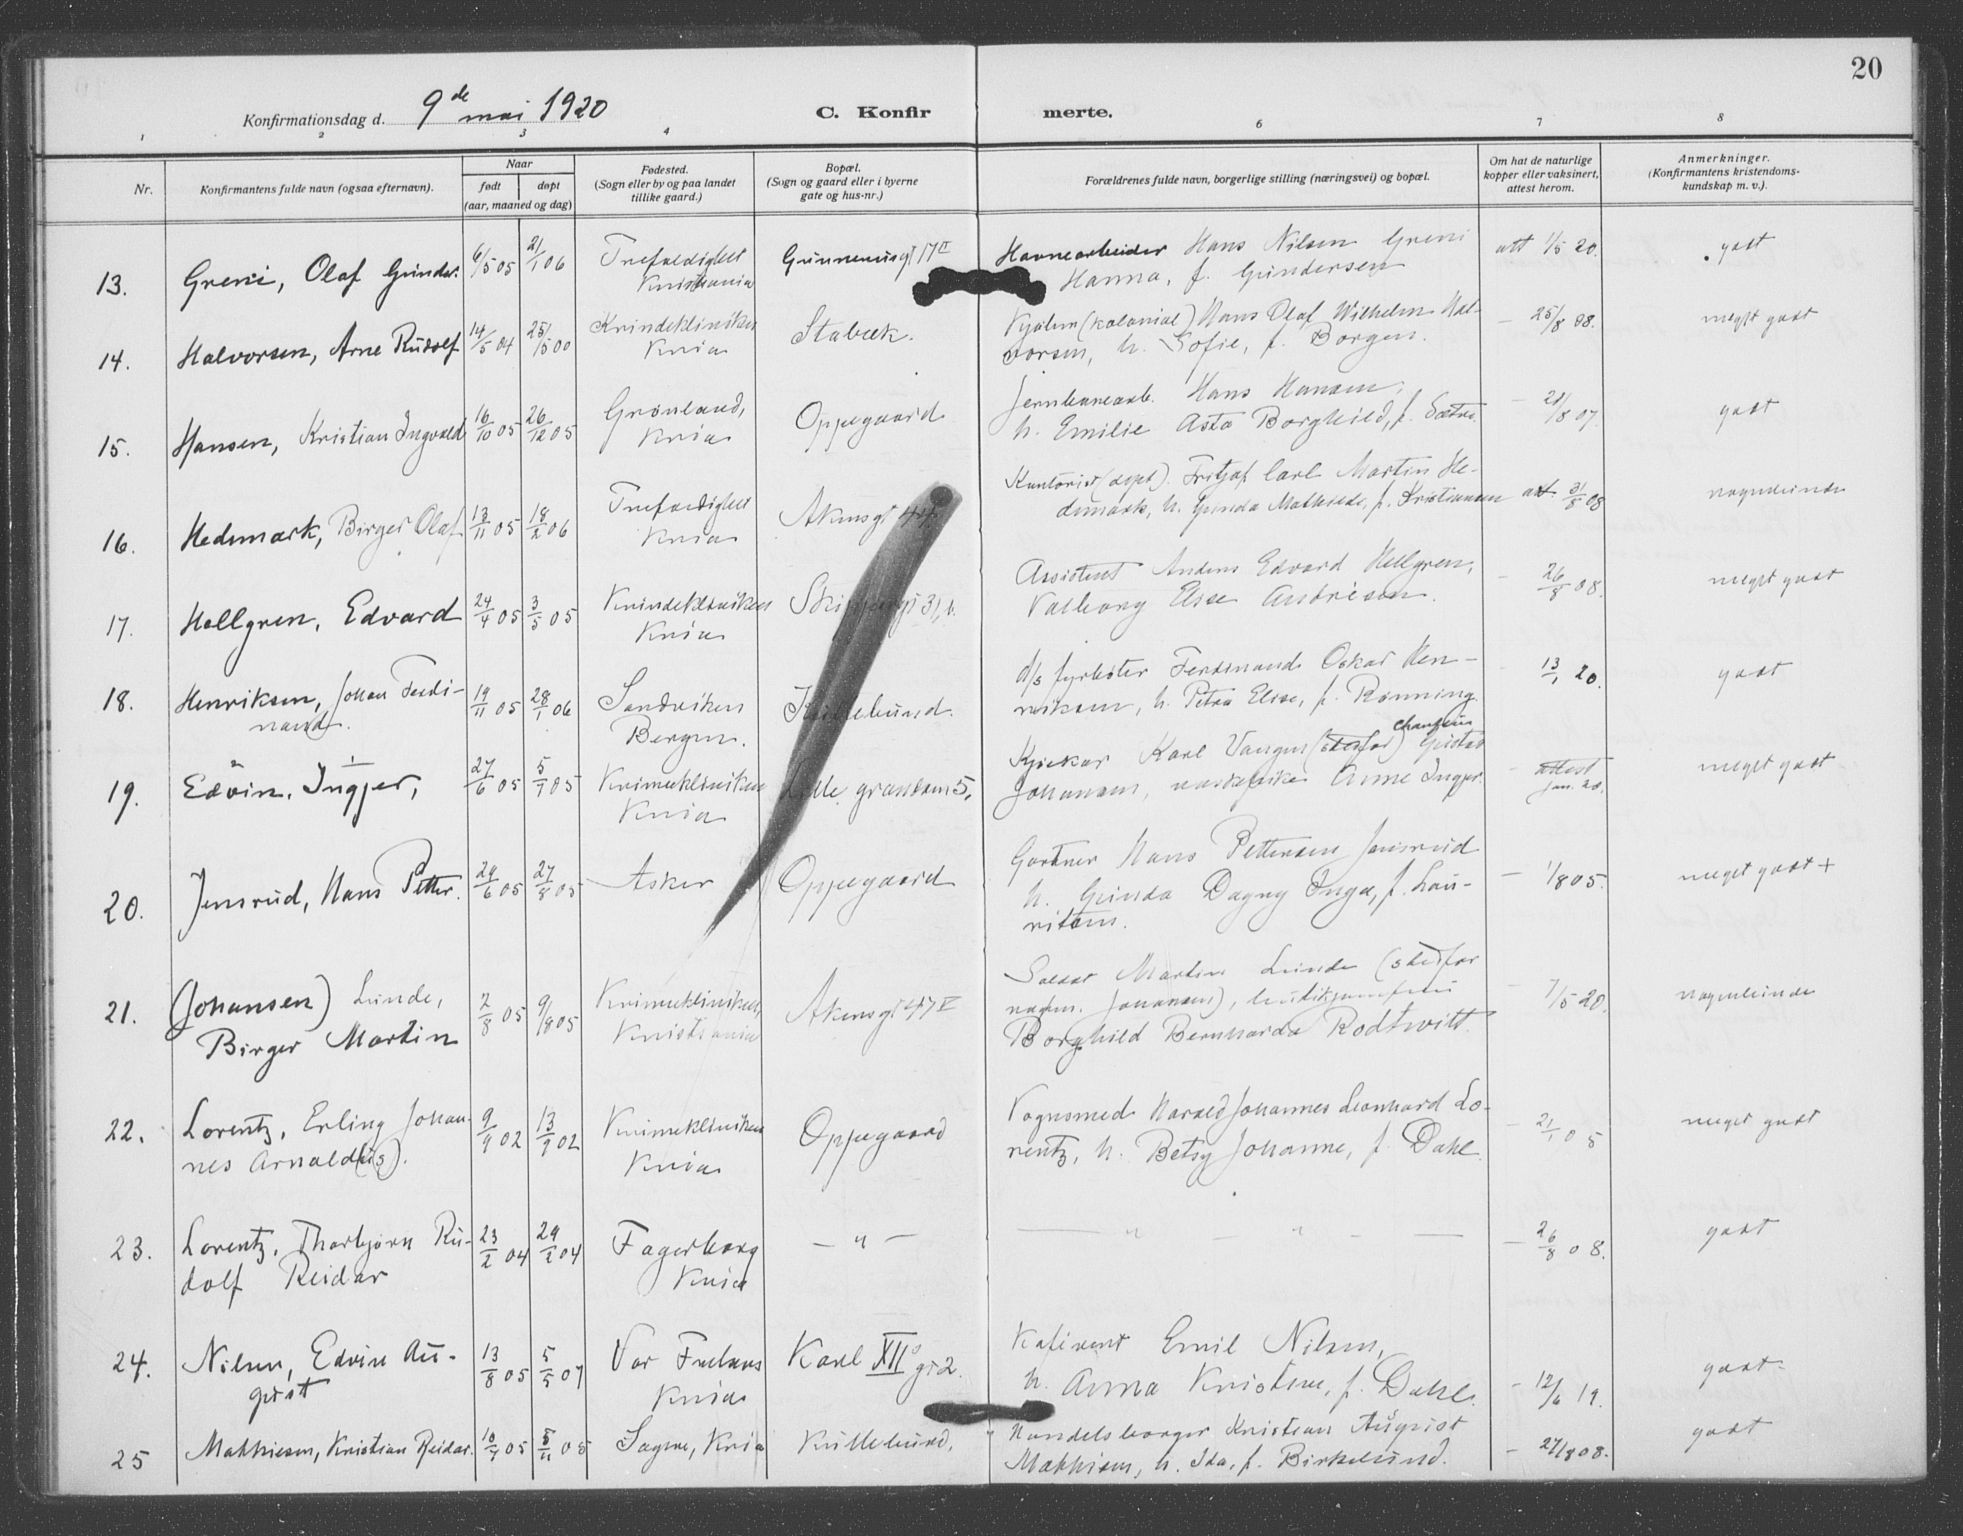 20
Konfirmationsdag d. 9de mai 1920
C. Konfirmerte.
1 2 3 4 6 7 8
Nr.
Konfirmantens fulde navn (ogsaa efternavn).
Naar
født døpt
(aar, maaned og dag)
Fødested.
(Sogn eller by og paa landet
tillike gaard.)
Bopæl.
(Sogn og gaard eller i byerne
gate og hus-nr.)
Forældrenes fulde navn, borgerlige stilling (næringsvei) og bopæl.
Om hat de naturlige
kopper eller vaksinert,
attest herom.
Anmerkninger.
(Konfirmantens kristendoms-
kundskap m. v.).
13. Greni, Olaf Gunder. 6/5 05 21/1 06 Trefoldighet Kristiania
Havnearbeider Hans Nilsen Greni
Hanna, f. Gundersen
att 1/5 20. godt
14. Halvorsen, Arne Rudolf 14/5 04 Kvindekliniken Kria Stabæk.
(kolonial) Hans Olaf Wilhelm Hal-
vorsen, h. Sofie, f. Borgen.
25/8 08. meget godt
15. Hansen, Kristian Ingvald 16/10 05 26/12 05 Grønland, Kria Oppegaard
Jernbanearb. Hans Hansen,
h. Emilie Asta Borghild, f. Sætre
21/8 07. godt
16. Hedemark, Birger Olaf 13/11 05 18/2 06 Trefoldighet Kria Akersgt
Kontorist Fritjof Carl Martin He-
demark, h. Gunda Mathilde, f. Kristiansen
att 31/8 08 nogenlunde
17. Hellgren, Edvard 24/4 05 3/5 05 Kvindekliniken Kria
Assistent Anders Edvard Hellgren,
Valborg Else
26/8 08. meget godt
18. Henriksen, Johan Ferdi-
nand. 19/11 05 28/1 06 Sandviken Bergen.
d/s fyrbøter Ferdinand Oskar Hen-
riksen, h. Petra Elise, f. Rønning
13/1 20. godt
19. Edvin, Ingjer, 27/6 05 5/7 05 Kvindekliniken Kria Lille grændsen 5.
Karl Vangen (stedfar) Chauffeur
Johansen, Anne Ingjer.
attest jan. 20. meget godt
20. Jensrud, Hans Petter. 29/6 05 27/8 05 Asker Oppegaard
Gartner Hans Pettersen Jensrud
h. Gunda Dagny Inga, f. Lau-
ritsen.
1/8 05. meget godt +
21. (Johansen) Lunde,
Birger Martin 2/8 05 9/8 05 Kvindekliniken, Kristiania Akersgt 47 V
Martin Lunde (stedfar
Johansen),
Borghild Bernharda Rodtwitt.
7/5 20. nogenlunde
22. Lorentz, Erling Johan-
nes Arnald(us). 9/9 02 13/9 02 Kvindekliniken Kria Oppegaard
Vognsmed Harald Johannes Leonhard Lo-
rentz, h. Betsy Johanne, f. Dahl
21/1 05 meget godt
23. Lorentz, Thorbjørn Ru-
dolf Reidar 23/2 04 29/2 04 Fagerborg Kria — " —
— " — " —
26/8 08. godt
24. Nilsen, Edvin Au-
gust 13/8 05 5/5 07 Vor Frelsers Kria Karl XII's gt 2.
Emil Nilsen,
h. Anna Kristine, f. Dahl.
12/6 19. godt
25 Mathiesen, Kristian Reidar. 10/7 05 5/11 05 Sagene, Kria Kullebund.
Handelsborger Kristian August
Mathisen, h. Ida, f. Birkelund.
27/8 08. godt